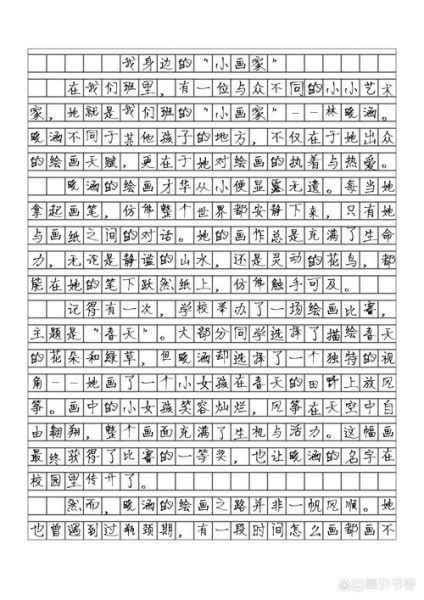 我身边的“小画家”
在我们班里，有一位与众不同的小小艺术
家，她就是我们班的“小画家”——林晚涵。
晚涵不同于其他孩子的地方，不仅在于她出众
的绘画天赋，更在于她对绘画的执着与热爱。
晚涵的绘画才华从小便显露无遗。每当她
拿起画笔，仿佛整个世界都安静下来，只有她
与画纸之间的对话。她的画作总是充满了生命
力，无论是静谧的山水，还是灵动的花鸟，都
能在她的笔下跃然纸上，仿佛触手可及。
记得有一次，学校举办了一场绘画比赛，
主题是“春天”。大部分同学选择了描绘春天
的花朵和绿草，但晚涵却选择了一个独特的视
角——她画了一个小女孩在春天的田野上放风
筝。画中的小女孩笑容灿烂，风筝在天空中自
由翱翔，整个画面充满了生机与活力。这幅画
最终获得了比赛的一等奖，也让晚涵的名字在
校园里传开了。
然而，晚涵的绘画之路并非一帆风顺。她
也曾遇到过瓶颈期，有一段时间怎么画都画不